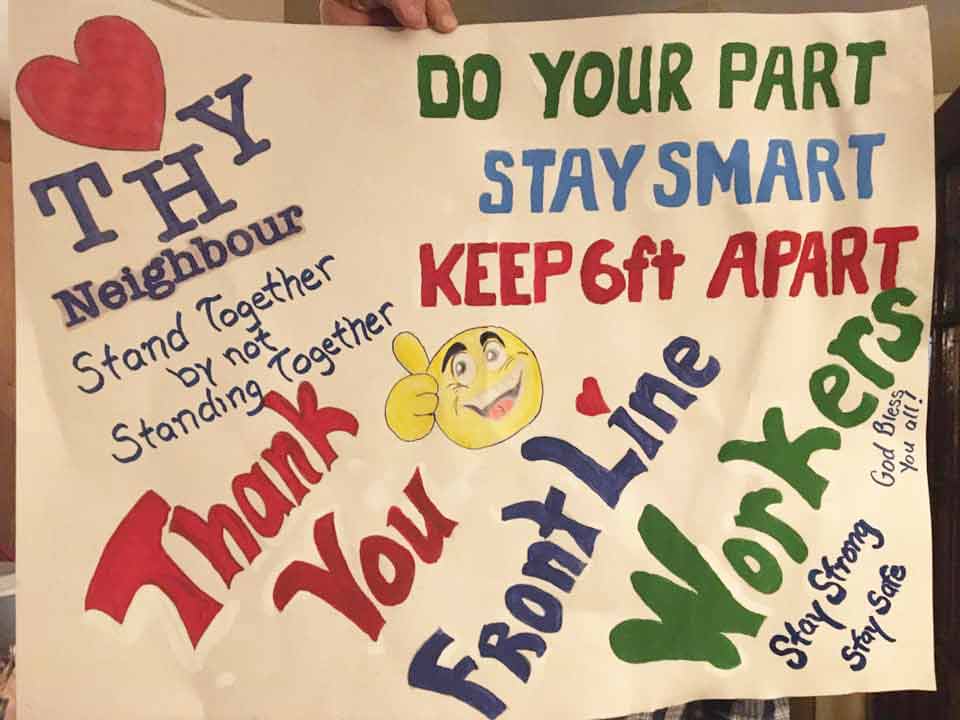 THY
Neighbour
Stand Together
by not
Standing Together
DO YOUR PART
STAY SMART
KEEP 6ft APART
Thank
You
Front Line
Workers
God Bless
You all!
Stay Strong
Stay Safe